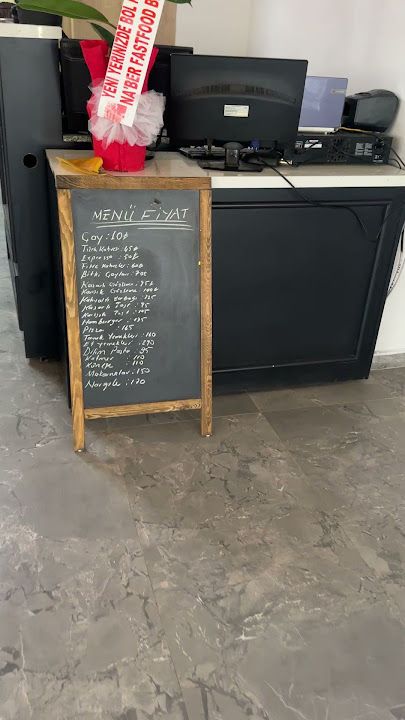 YENİ YERİNİZDE BOL
NA'BER FASTFOOD
MENÜ FİYAT
Çay : 10₺
Türk Kahvesi : 65₺
Espresso : 50₺
Filtre Kahveler : 60₺
Bitki Çayları : 70₺
Kaşarlı Gözleme : 95₺
Karışık Gözleme : 100₺
Kahvaltı Tabağı : 225
Kaşarlı Tost : 95
Karışık Tost : 105
Hamburger : 135
Pizza : 165
Tavuk Yemekleri : 160
Et Yemekleri : 290
Dilim Pasta : 95
Katmer : 110
Künefe : 110
Makarnalar : 150
Nargile : 120